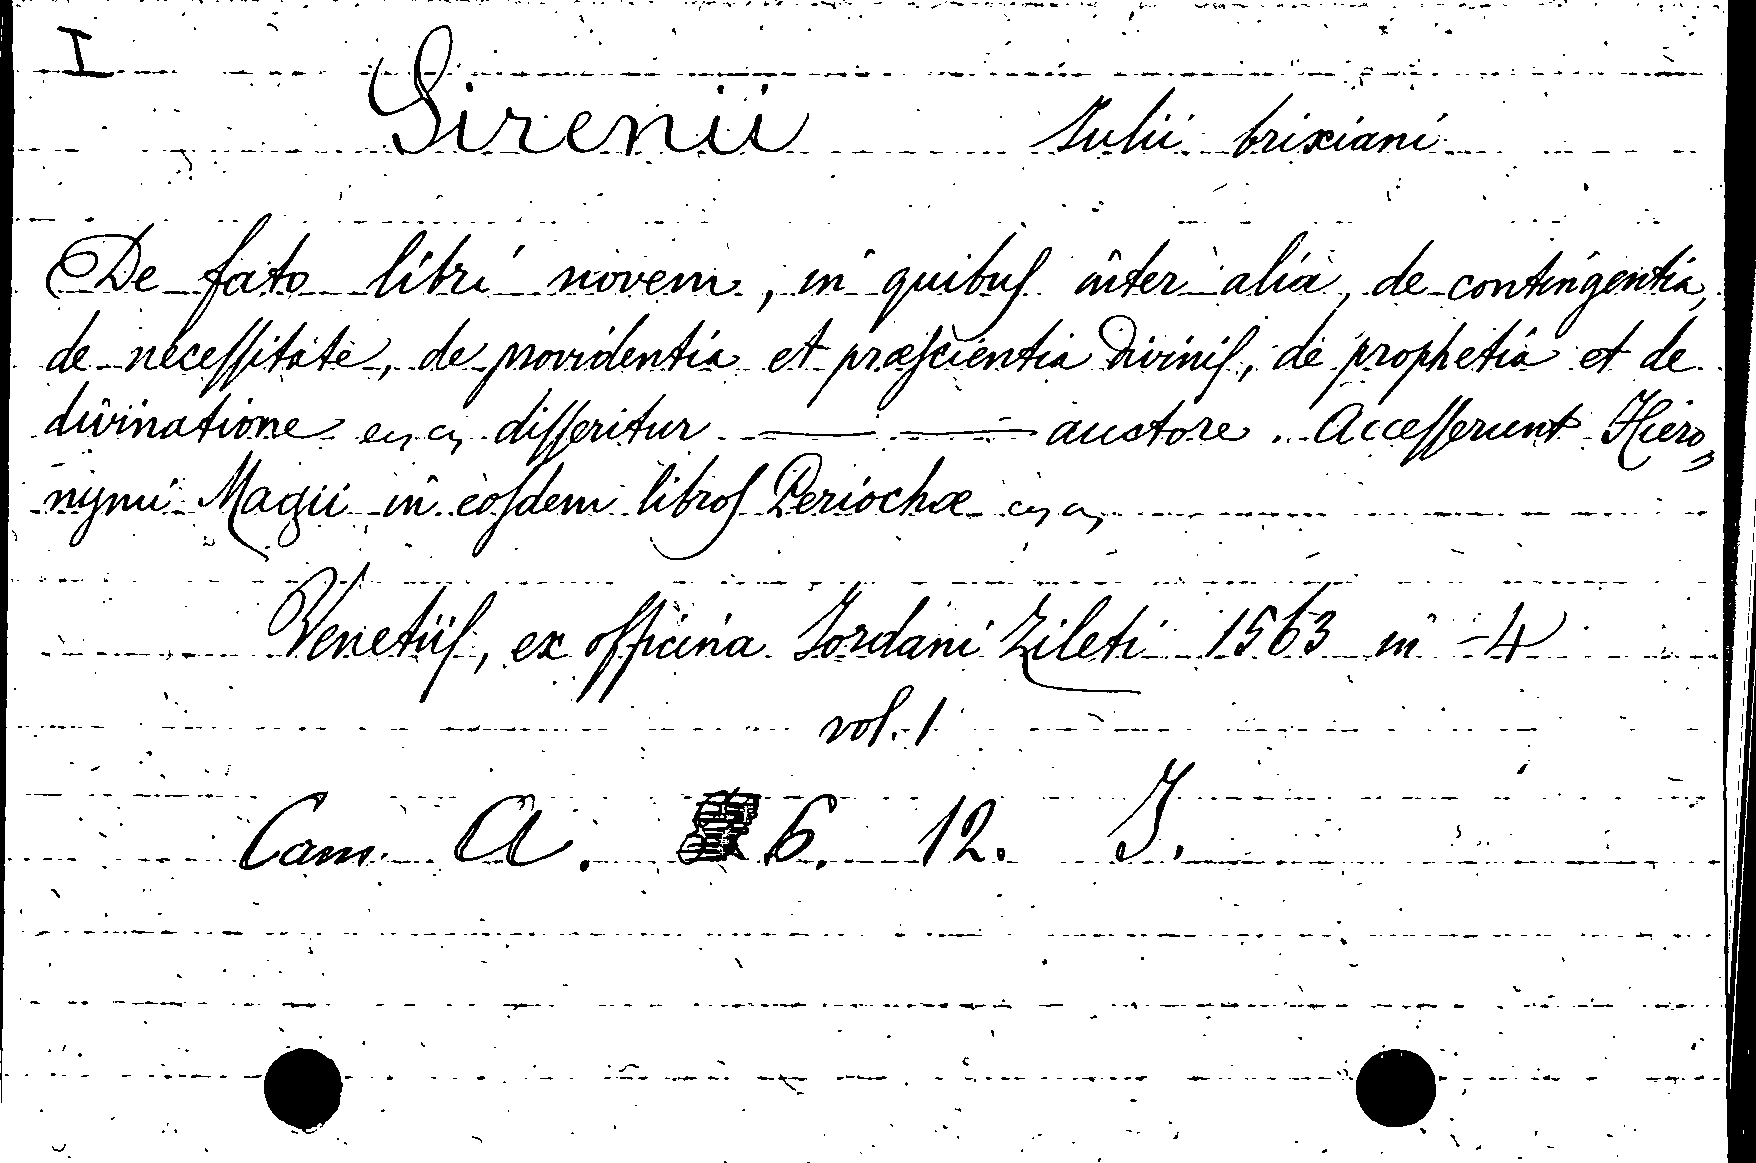 I
Sirenii Iulii brixiani
De fato libri novem, in quibus inter alia, de contingentia,
de necessitate, de providentia et præscientia Divinis, de prophetia et de
divinatione disseritur — — auctore. Accesserunt Hiero„
nymi Magii in eosdem libros Periochæ
Venetiis, ex officina Iordani Zileti 1563 in -4
vol. 1
Cam. A. 6. 12. I.